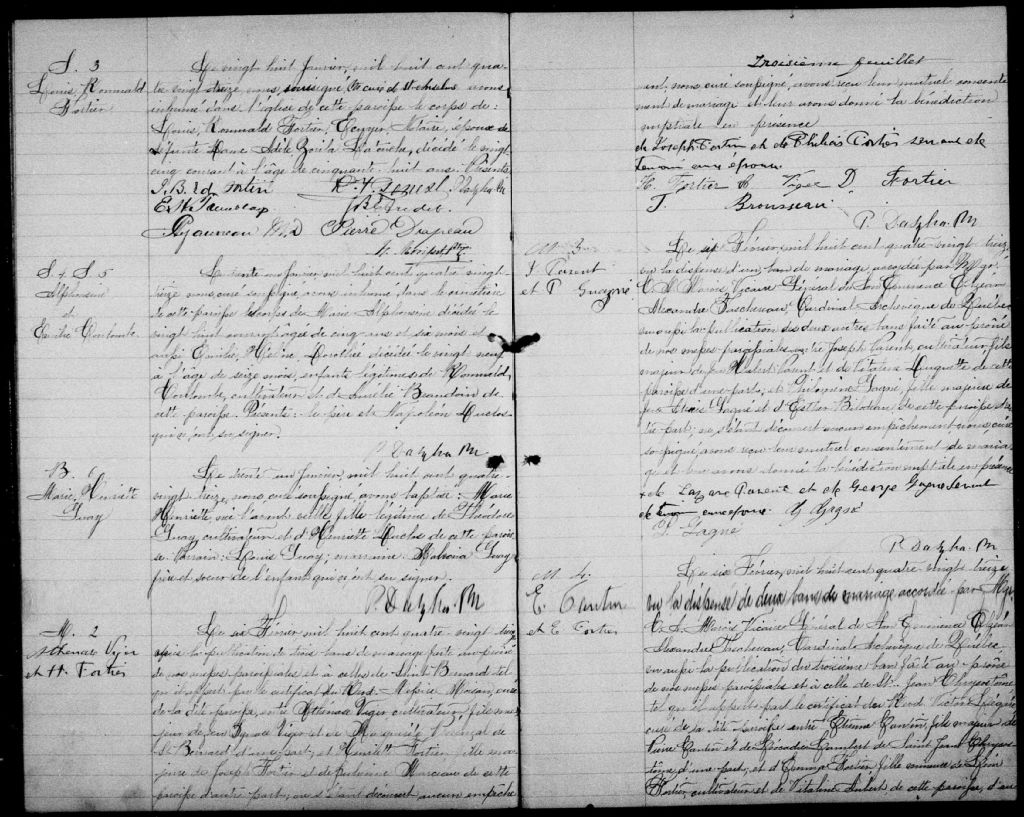 S. 3
Louis Romuald
Fortier
Le vingt huit Janvier, mil huit cent qua-
tre vingt treize, nous, soussigné, curé d avons
inhumé dans l'église de cette paroisse le corps de:
Louis, Romuald Fortier, Ecuyer, Notaire, époux de
défunte Marie Adèle Zoïla Larochelle, décédé le vingt
cinq courant à l'âge de cinquante huit ans. Présents
J. B. Ed Fortier
E. H. Tremblay
M.D Pierre Drapeau
Ptre
S 4 S 5
Alphonsine
et
Emilie Couture
Le trente un Janvier mil huit cent quatre vingt
treize nous curé soussigné avons inhumé dans le cimetière
de cette paroisse le corps de Marie Alphonsine décédée le
vingt huit âgée de cinq ans et six mois et
aussi Emilie, Dorothée décédée le vingt neuf
à l'âge de seize mois, enfants légitimes de Romuald
cultivateur et de Amélie de
cette paroisse. Présents: le père et Napoléon
qui n'ont su signer.
Ptre
B. 6
Marie, Henriette
Guay
Le trente un Janvier, mil huit cent quatre
vingt treize, nous, curé soussigné, avons baptisé: Marie
Henriette, née l'avant veille, fille légitime de Théodore
Guay, cultivateur et d'Henriette de cette parois-
se. Parrain: Louis Guay; marraine Guay
frère et soeur de l'enfant qui n'ont su signer.
Ptre
M. 2
Viger
et H. Fortier
Le six Février mil huit cent quatre vingt treize
après la publication de trois bans de mariage faite au prône
de nos messes paroissiales et à celles de Saint Bernard tel
qu'il appert par le certificat du Revd. Messire Moisan, curé
de la dite paroisse, entre Athénase Viger cultivateur, fils ma-
jeur de feu Viger et de Marguerite de
St Bernard d'une part, et Henriette Fortier, fille ma-
jeure de Joseph Fortier et de Marceau de cette
paroisse d'autre part; ne s'étant découvert aucun empêche-
Troisième feuillet
ment, nous curé soussigné, avons reçu leur mutuel consente-
ment de mariage et leur avons donné la bénédiction
nuptiale en présence
de Joseph Fortier et de Philéas Fortier servant de
témoin aux époux
H. Fortier Viger D. Fortier
J. Brousseau
Ptre
M 3
J Parent
et P Gagné
Le six Février, mil huit cent quatre vingt treize
vu la dispense d'un ban de mariage accordée par Mgr.
C. A. Marois, Vicaire Général de Son Eminence Elzéar
Alexandre Taschereau, Cardinal Archevêque de Québec,
vu aussi la publication des deux autres bans faite au prône
de nos messes paroissiales, entre Joseph Parent, cultivateur, fils
majeur de feu Hubert Parent et de de cette
paroisse d'une part; et Philomène Gagné, fille majeure de
feu Gagné et d'Esther Bilodeau, de cette paroisse d'au-
tre part; ne s'étant découvert aucun empêchement, nous curé
soussigné, avons reçu leur mutuel consentement de maria-
ge et leur avons donné la bénédiction nuptiale en présence
de Lazare Parent et de George Gagné servant
de témoin aux époux. G Gagné
P. Gagné
Ptre
M 4.
E. Cantin
et E Fortier
Le six Février, mil huit cent quatre vingt treize
vu la dispense de deux bans de mariage accordée par Mgr.
C. A. Marois Vicaire Général de Son Eminence Elzéar
Alexandre Taschereau, Cardinal Archevêque de Québec,
vu aussi la publication du troisième ban faite au prône
de nos messes paroissiales et à celle de St. Jean Chrysostôme
tel qu'il appert par le certificat du Revd Victor
curé de la dite paroisse entre Etienne Cantin, fils majeur de
Pierre Cantin et de Léocadie Lambert de Saint Jean Chrysos-
tôme, d'une part; et d'Emma Fortier fille mineure de
Fortier, cultivateur et de Vitaline Aubert, de cette paroisse, d'au-